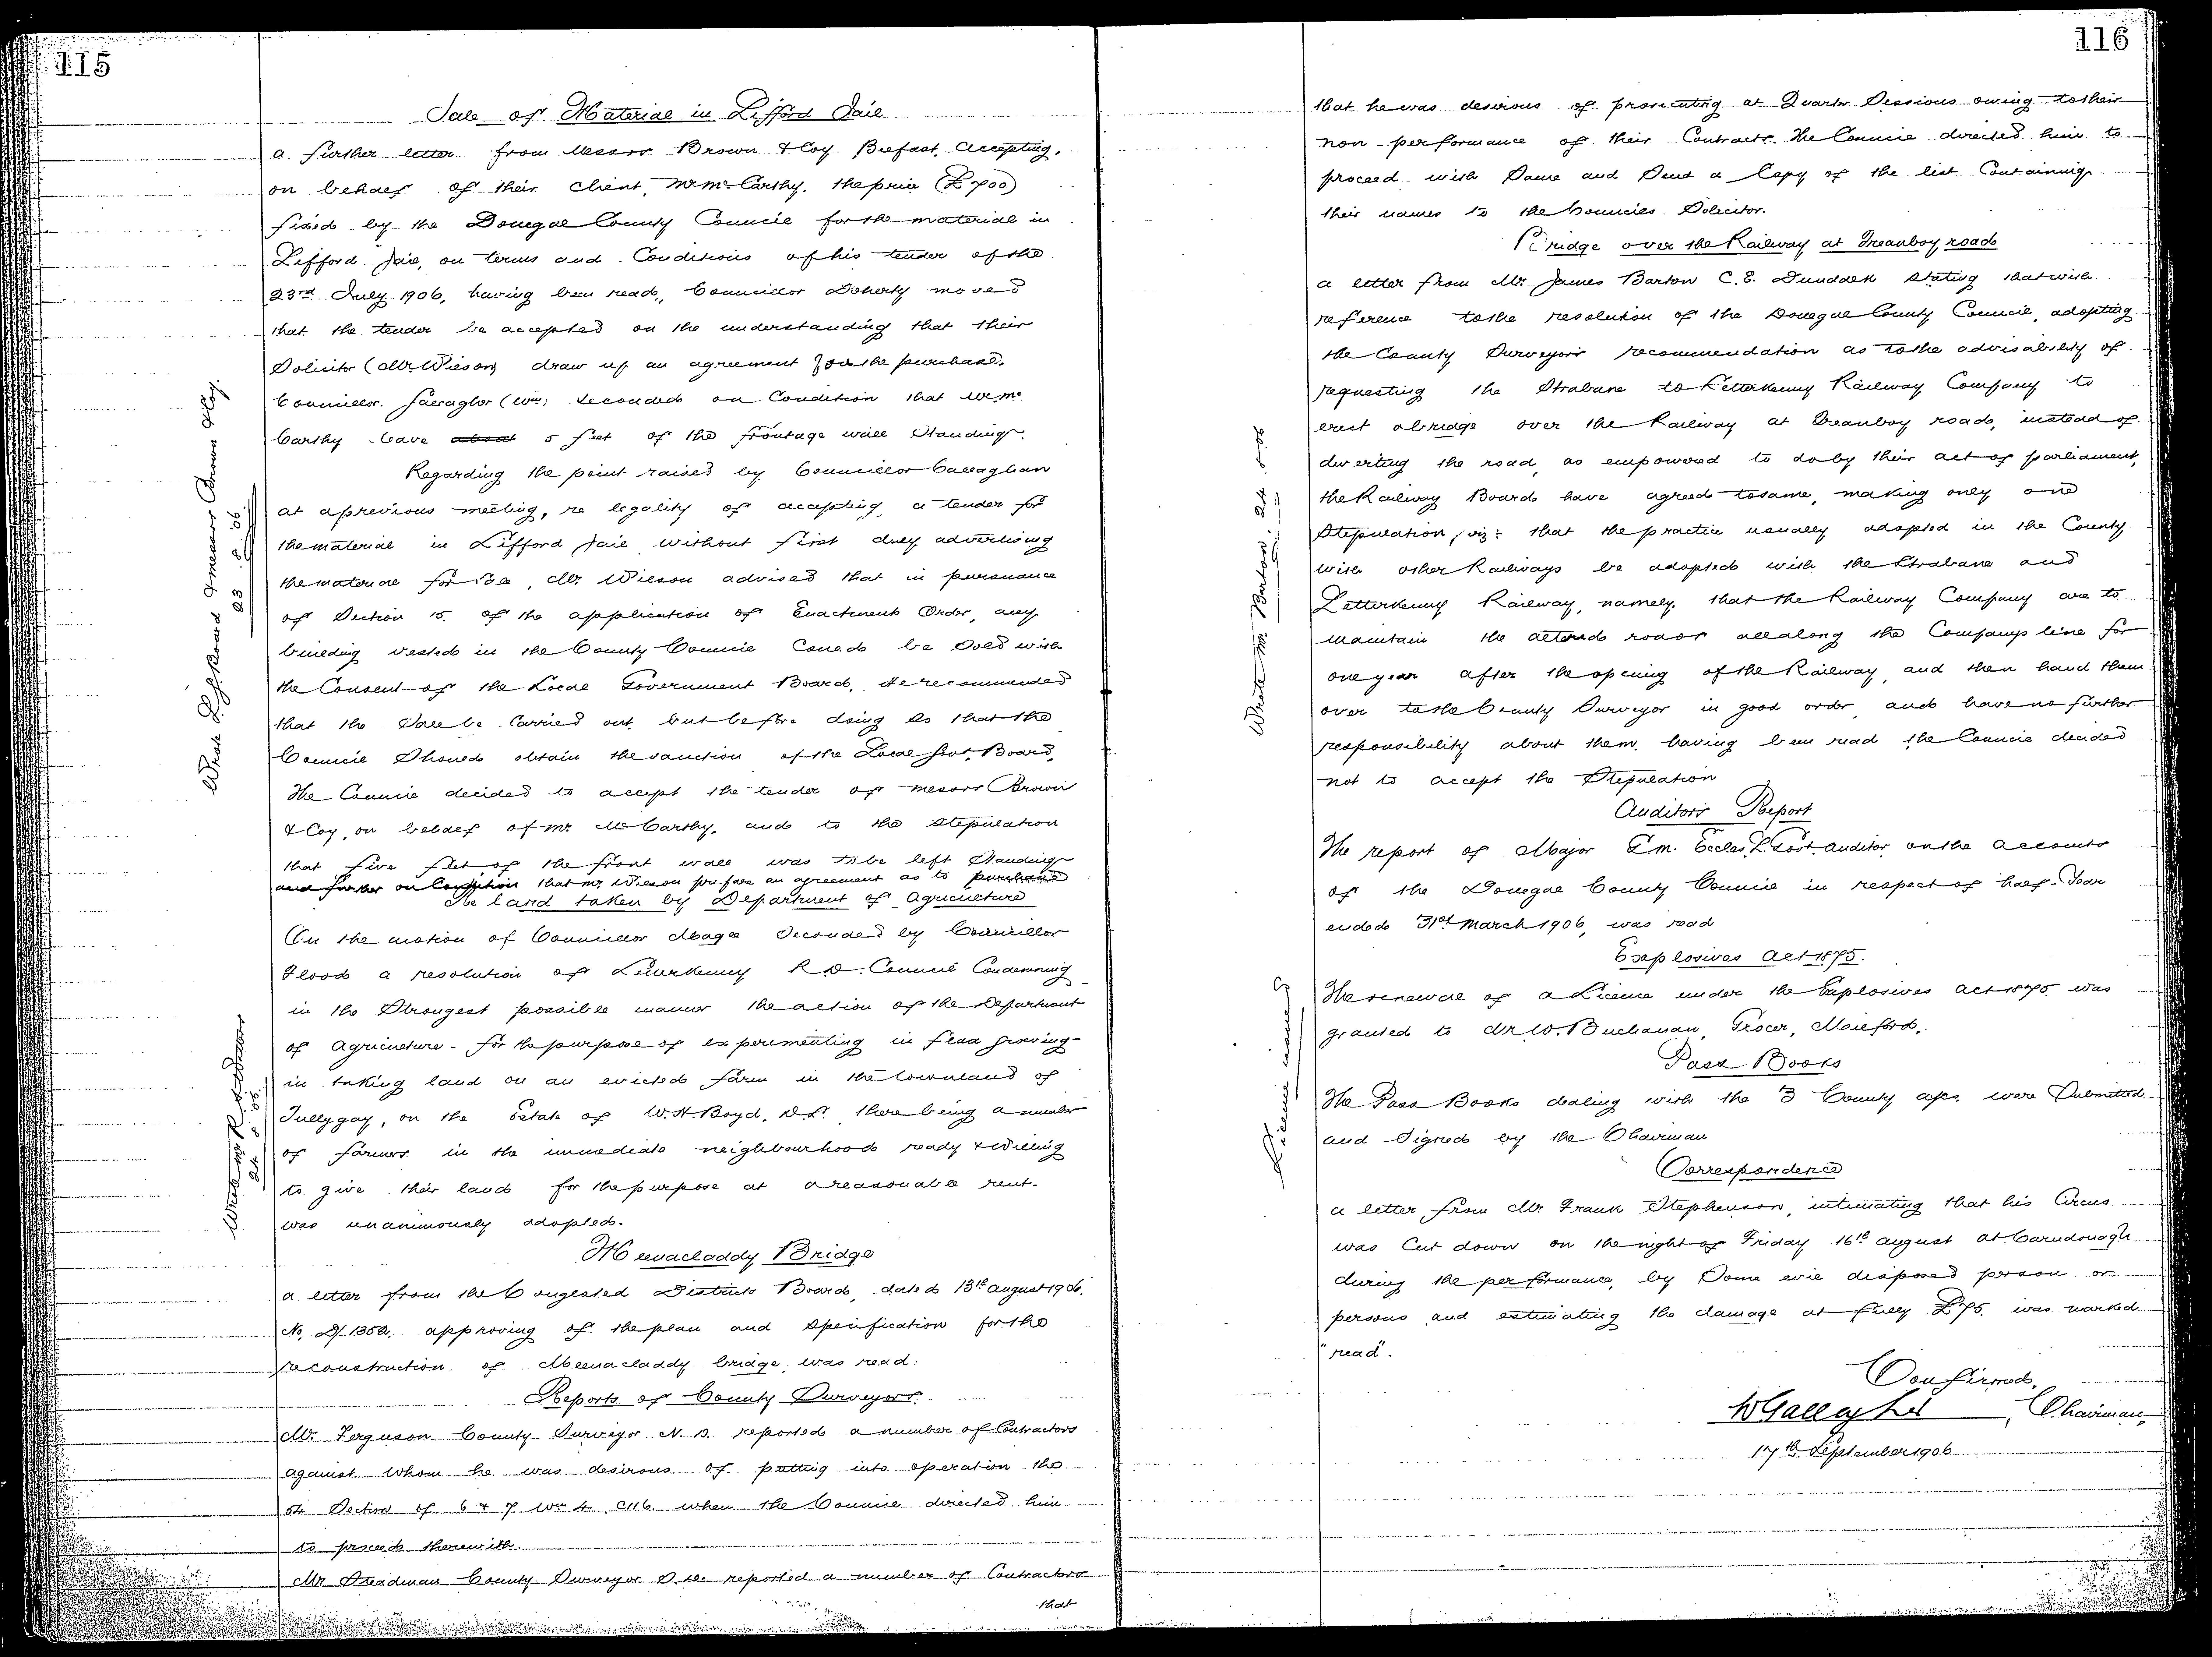 115
Sale of Material in Lifford Jail
a further letter from Messrs Brown & Coy Belfast, accepting,
on behalf of their client, Mr McCarthy, the price (£700)
fixed by the Donegal County Council for the material in
Lifford Jail, on terms and Conditions of his tender of the
23rd July 1906, having been read, Councillor Doherty moved
that the tender be accepted on the understanding that their
Solicitor (Mr Wilson) draw up an agreement for the purchase.
Councillor Gallagher (Wm) seconded on Condition that Mr Mc
Carthy leave about 5 feet of the frontage wall Standing.
Regarding the point raised by Councillor Callaghan
at a previous meeting, re legality of accepting a tender for
the material in Lifford Jail without first duly advertising
the material for , Mr Wilson advised that in pursuance
of Section 15 of the application of Enactments Order, any
building vested in the County Council Could be Sold with
the Consent of the Local Government Board. He recommended
that the Sale be Carried out, but before doing so that the
Council Should obtain the sanction of the Local Govt. Board,
The Council decided to accept the tender of Messrs Brown
& Coy, on behalf of Mr McCarthy, and to the stipulation
that five feet of the front wall was to be left Standing
and further on Condition that Mr Wilson prepare an agreement as to purchase
Re land taken by Department of Agriculture
On the motion of Councillor Magee Seconded by Councillor
Flood a resolution of Letterkenny R.D. Council Condemning
in the Strongest possible manner the action of the Department
of Agriculture - for the purpose of experimenting in flax growing -
in taking land on an evicted farm in the townland of
Tullygay, on the Estate of W.H. Boyd, D.L. there being a number
of farmers in the immediate neighbourhood ready & willing
to give their land for the purpose at a reasonable rent.
was unanimously adopted.
Meenacladdy Bridge
a letter from the Congested Districts Board, dated 13th August 1906,
No. 1352, approving of the plan and Specification for the
reconstruction of Meenacladdy bridge, was read.
Reports of County Surveyors
Mr Ferguson County Surveyor N.D. reported a number of Contractors
against whom he was desirous of putting into operation the
Section of 6 & 7 Wm 4 C116 when the Council directed him
to proceed therewith.
Mr Steadman County Surveyor reported a number of Contractors
that
Wrote L.G. Board & Messrs Brown & Coy.
23 8 06
Wrote Mr R.
24 8 06
116
that he was desirous of prosecuting at Quarter Sessions owing to their
non-performance of their Contracts. The Council directed him to
proceed with Same and Send a Copy of the list Containing
their names to the Councils Solicitor.
Bridge over the Railway at Treanboy road
a letter from Mr. James Barton C.E. Dundalk stating that with
reference to the resolution of the Donegal County Council, adopting
the County Surveyors recommendation as to the advisability of
requesting the Strabane to Letterkenny Railway Company to
erect a bridge over the Railway at Treanboy road, instead of
diverting the road, as empowered to do by their act of parliament,
the Railway Board have agreed to same, making only one
Stipulation, viz: that the practice usually adopted in the County
with other Railways be adopted with the Strabane and
Letterkenny Railway, namely, that the Railway Company are to
maintain the altered roads all along the Companys line for
one year after the opening of the Railway, and then hand them
over to the County Surveyor in good order, and have no further
responsibility about them, having been read, the Council decided
not to accept the Stipulation
Auditors Report
The report of Major Eccles L. Govt. Auditor, on the accounts
of the Donegal County Council in respect of half-Year
ended 31st March 1906, was read
Explosives Act 1875.
The renewal of a Licence under the Explosives Act 1875, was
granted to Mr W. Buchanan, Grocer, Milford.
Pass Books
The Pass Books dealing with the 3 County a/cs. were Submitted
and Signed by the Chairman
Correspondence
a letter from Mr Frank Stephenson, intimating that his Circus
was Cut down on the night of Friday 16th August at Carndonagh
during the performance, by Some evil disposed person or
persons and estimating the damage at fully £75, was marked
"read".
Confirmed,
W Gallagher, Chairman,
17th September 1906
Wrote Mr Barton, 24 8 06
Licence issued